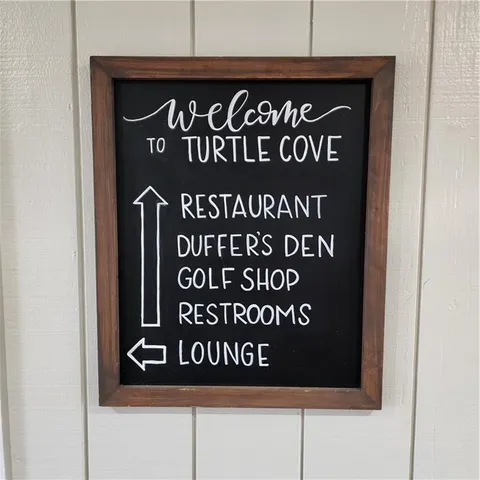 Welcome
TO TURTLE COVE
RESTAURANT
DUFFER'S DEN
GOLF SHOP
RESTROOMS
LOUNGE